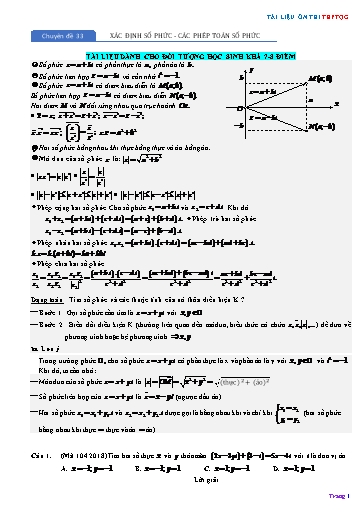 TÀI LIỆU ÔN THI THPTQG
Chuyên đề 33
XÁC ĐỊNH SỐ PHỨC - CÁC PHÉP TOÁN SỐ PHỨC
TÀI LIỆU DÀNH CHO ĐỐI TƯỢNG HỌC SINH KHÁ 7-8 ĐIỂM
Số phức z = a + bi có phần thực là a, phần ảo là b.
Số phức liên hợp z̄ = a − bi và cần nhớ i² = −1.
Số phức z = a + bi có điểm biểu diễn là M(a;b).
Số phức liên hợp z̄ = a − bi có điểm biểu diễn N(a;−b).
Hai điểm M và N đối xứng nhau qua trục hoành Ox.
y
M(a;b)
z = a + bi
O
x
z̄ = a − bi
N(a;−b)
Hai số phức bằng nhau khi thực bằng thực và ảo bằng ảo.
Mô đun của số phức z là: |z| = √(a² + b²)
Phép cộng hai số phức: Cho số phức z₁ = a + bi và z₂ = c + di. Khi đó
z₁ + z₂ = (a + bi) + (c + di) = (a + c) + (b + d).i. Phép trừ hai số phức
z₁ − z₂ = (a + bi) − (c + di) = (a − c) + (b − d).i.
Phép nhân hai số phức z₁.z₂ = (a + bi).(c + di) = (ac − bd) + (ad + bc).i.
k.z = k.(a + bi) = ka + kbi
Phép chia hai số phức
Dạng toán. Tìm số phức và các thuộc tính của nó thỏa điều kiện K ?
Bước 1. Gọi số phức cần tìm là z = x + yi với x, y ∈
Bước 2. Biến đổi điều kiện K (thường liên quan đến môđun, biểu thức có chứa z, z̄, |z|,...) để đưa về
phương trình hoặc hệ phương trình ⇒ x, y
Lưu ý
Trong trường phức, cho số phức z = x + yi có phần thực là x và phần ảo là y với x, y ∈ và i² = −1.
Khi đó, ta cần nhớ:
Môđun của số phức z = x + yi là |z| = |OM| = √(x² + y²) = √((thực)² + (ảo)²)
Số phức liên hợp của z = x + yi là z̄ = x − yi (ngược dấu ảo)
Hai số phức z₁ = x₁ + y₁i và z₂ = x₂ + y₂i được gọi là bằng nhau khi và chỉ khi { x₁ = x₂ y₁ = y₂ (hai số phức
bằng nhau khi thực = thực và ảo = ảo)
Câu 1. (Mã 104 2018) Tìm hai số thực x và y thỏa mãn (2x − 3yi) + (3 − i) = 5x − 4i với i là đơn vị ảo.
A. x = 1; y = −1 B. x = −1; y = −1 C. x = −1; y = 1 D. x = 1; y = 1
Lời giải
Trang 1